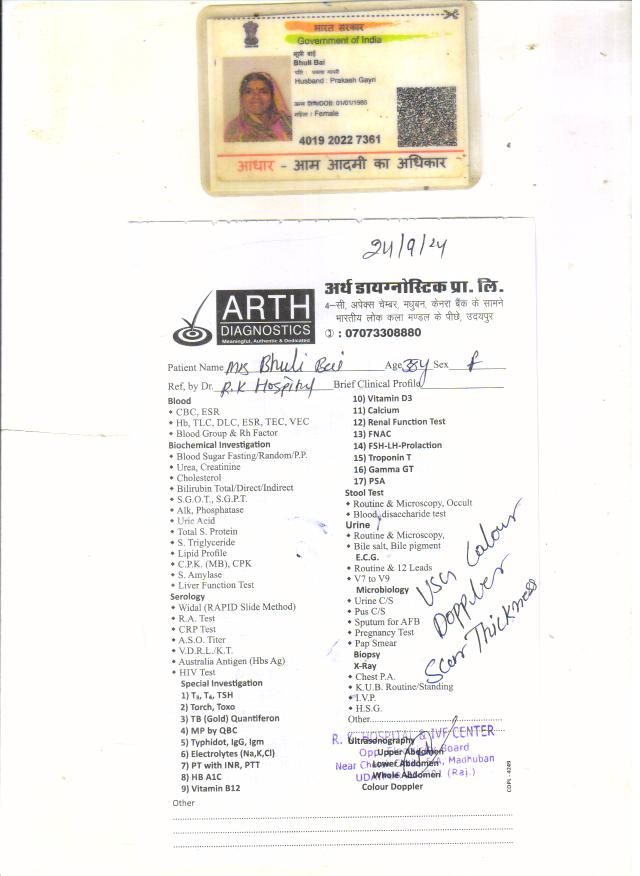 भारत सरकार
Government of India
भूली बाई
Bhuli Bai
पति : प्रकाश गायरी
Husband : Prakash Gayri
जन्म तिथि/DOB: 01/01/1986
महिला / Female
4019 2022 7361
आधार - आम आदमी का अधिकार
24/9/24
ARTH
DIAGNOSTICS
Meaningful, Authentic & Dedicated
अर्थ डायग्नोस्टिक प्रा. लि.
4-सी, अपेक्स चेम्बर, मधुबन, केनरा बैंक के सामने
भारतीय लोक कला मण्डल के पीछे, उदयपुर
: 07073308880
Patient Name Mrs Bhuli Bai Age 38y Sex f
Ref, by Dr. R.K Hospital Brief Clinical Profile
Blood
CBC, ESR
Hb, TLC, DLC, ESR, TEC, VEC
Blood Group & Rh Factor
Biochemical Investigation
Blood Sugar Fasting/Random/P.P.
Urea, Creatinine
Cholesterol
Bilirubin Total/Direct/Indirect
S.G.O.T., S.G.P.T.
Alk, Phosphatase
Uric Acid
Total S. Protein
S. Triglyceride
Lipid Profile
C.P.K. (MB), CPK
S. Amylase
Liver Function Test
Serology
Widal (RAPID Slide Method)
R.A. Test
CRP Test
A.S.O. Titer
V.D.R.L./K.T.
Australia Antigen (Hbs Ag)
HIV Test
Special Investigation
1) T₃, T₄, TSH
2) Torch, Toxo
3) TB (Gold) Quantiferon
4) MP by QBC
5) Typhidot, IgG, Igm
6) Electrolytes (Na,K,Cl)
7) PT with INR, PTT
8) HB A1C
9) Vitamin B12
Other
10) Vitamin D3
11) Calcium
12) Renal Function Test
13) FNAC
14) FSH-LH-Prolaction
15) Troponin T
16) Gamma GT
17) PSA
Stool Test
Routine & Microscopy, Occult
Blood, disaccharide test
Urine
Routine & Microscopy,
Bile salt, Bile pigment
E.C.G.
Routine & 12 Leads
V7 to V9
Microbiology
Urine C/S
Pus C/S
Sputum for AFB
Pregnancy Test
Pap Smear
Biopsy
X-Ray
Chest P.A.
K.U.B. Routine/Standing
I.V.P.
H.S.G.
Other
Ultrasonography
Upper Abdomen
Lower Abdomen
Whole Abdomen
Colour Doppler
USG Colour
Doppler
Scar Thickness
R. K. HOSPITAL & IVF CENTER
Board
Madhuban
(Raj.)
COPL - 4249